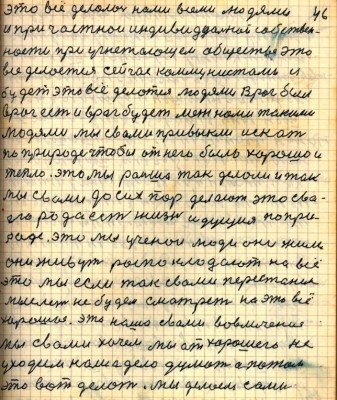 это всё делолос нами всеми людями 46
и при частной индивидуалной собствен-
ности при угнетающем обществе это
все делоется сейчас комунистами и
будет это всё делотся людями Враг был
враг ест и враг будет меж нами такими
людями мы свами привыкли искат
по природе чтобы от него было хорошо и
тепло. это мы раниа так делоли и так
мы свами до сих пор делоют это сва-
его рода ест жизн идущия по при-
роде. это мы ученои люди они жили
они живут роспоклодают на всё
это мы если так свами перестанем
мыслет не будем смотрет на это всё
хорошое. это наша свами вовлечения
мы свами хочем мы от хорошего не
уходим наша дело думат а потом
это вот делот. мы делоем сами